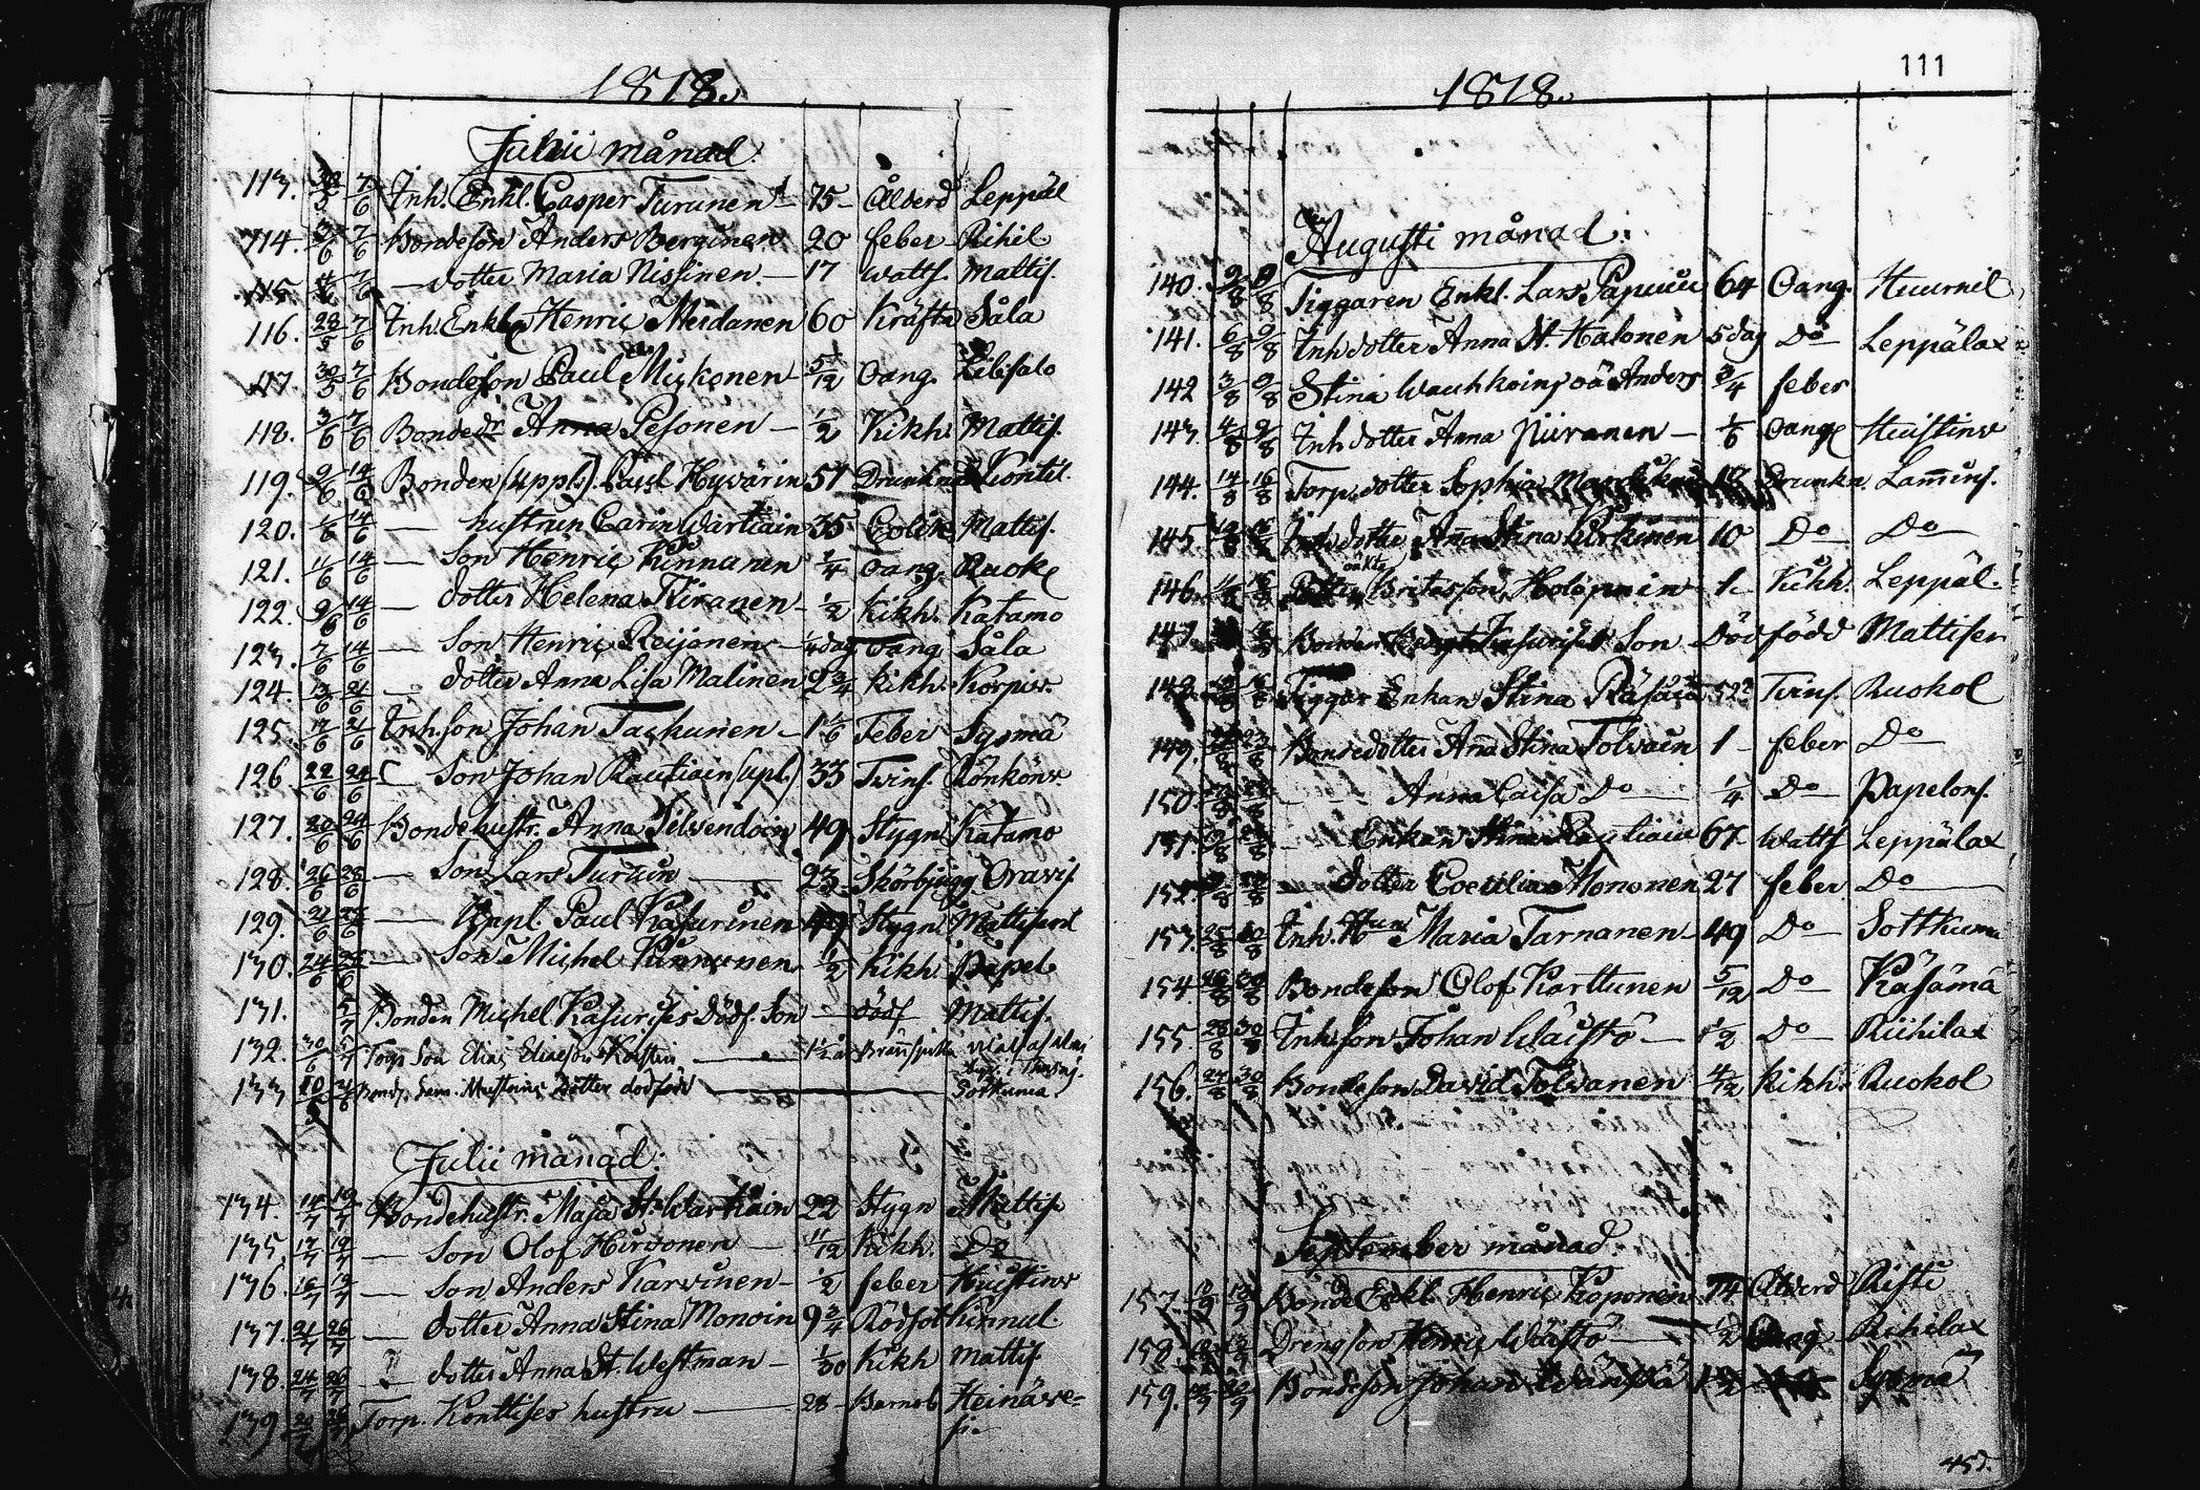 1818.
Julii månad.
113. 30/5 7/6 Inh. Enkl. Casper Turunen 75 Ålderd Leppäl
114. 3/6 7/6 Bondeson Anders Berginen 20 feber Rihil.
115. 7/6 — dotter Maria Nissinen. — 17 watts. Mattis.
116. 28/5 7/6 Inh. Enkl. Henric Meidanen 60 Kräfta Såla
117. 30/5 7/6 Bondeson Paul Miskonen 5/12 Oang. Libisalo
118. 3/6 7/6 Bonde dr Anna Pesonen — 1/2 Kikh. Mattis.
119. 9/6 14/6 Bonden (uppl.) Paul Hyvärin 51 Drunknad Kontil.
120. 14/6 — hustrun Carin Wartiain 35 Colik Mattis.
121. 11/6 14/6 — Son Henric Kinnanen 1/4 oang. Ruok
122. 9/6 14/6 — dotter Helena Piiranen 1/2 Kikh. Katamo
123. 7/6 14/6 — Son Henric Reijonen 4 dag oang Såla
124. 21/6 — dotter Anna Lisa Malinen 2 3/4 kikh. Korpiv.
125. 17/6 21/6 Inh. son Johan Tackunen 1 1/6 Feber Sysmä
126. 22/6 24/6 — Son Johan Rautiain (upl.) 33 Tvins. Rönkönv.
127. 20/6 24/6 Bondehustr. Anna Silvendoin 49 Stygn Katamo
128. 26/6 28/6 — Son Lars Turuin — 23 Skörbjugg Oravis
129. 21/6 — Uppl. Paul Kasurinen 49 Stygn Mattiserd
130. 24/6 — Son Michel Kinnunen 1/2 Kikh. Papel.
131. 5/7 Bonden Michel Kasurises Dödf. Son — dödf Mattis.
132. 30/6 5/7 Torp Son Elias Eliasson 1 1/2 år
133 dotter dödfödd — Sotkuma.
Julii månad.
134. 14/7 19/7 Bondehustr. Maja St. Wartiain 22 Stygn Mattis
135. 17/7 19/7 — Son Olof Hirvonen — 11/12 Kikh. Do
136. 16/7 19/7 — Son Anders Karvinen — 1/2 feber Huistinv
137. 21/7 26/7 — dotter Anna Stina Monoin 9 3/4 Rödsot Kinnul.
138. 24/7 26/7 — dotter Anna St. Westman — 1/30 Kikh Mattis
139. Torp. Konttises hustru — 28 — Barnsb Heinäve=
si.
1818.
111
Augusti månad.
140. 2/8 9/8 Tiggaren Enkl. Lars Papuin 64 Oang. Huurnil
141. 6/8 9/8 Inh dotter Anna St. Halonen 5 dag Do Leppälax
142 3/8 9/8 Stina Wauhkoins oä Anders 3/4 feber
143. 4/8 9/8 Inh dotter Anna Piiranen — 1/6 Oang Huistinv
144. 14/8 16/8 Torp. dotter Sophia 10 Drunkn. Lamins.
145. Inh dotter Anna Stina Kirkinen 10 Do Do
146. oäkta Britas son Holopain 1 — Kikh. Leppäl.
147. Bonden Bengt Kasurises Son — Dödfödd Mattiser
148. Tiggar Enkan Stina Räsäin 52 Tvins. Ruokol
149. Bondedotter Ana Stina Tolvain 1 — feber Do
150. — Anna Caisa Do — 1/4 Do Papelons.
151. — Enkan Stina Rautiain 67 Watts Leppälax
152. — dotter Coecilia Mononen 27 feber Do
153. 25/8 30/8 Inh. Hun Maria Tarnanen 49 Do Sottkuma
154 26/8 30/8 Bondeson Olof Karttunen 5/12 Do Käsämä
155. 28/8 30/8 Inh son Johan Wäistö — 1/2 Do Riihilax
156. 27/8 30/8 Bondeson David Tolvanen 4/12 Kikh. Ruokol
September månad.
157. Bonde Enkl. Henric Koponen 74 Ålderd Risti
158. Drengson Henric Wäistö — 1/2 Oang Rihilax
159. Bondeson Johan Sysmä